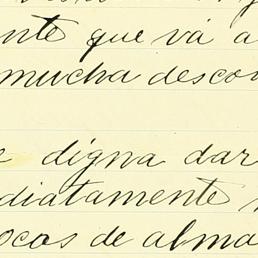 nte que vá a
mucha descon
e digna dar
diatamente
ocas de alma